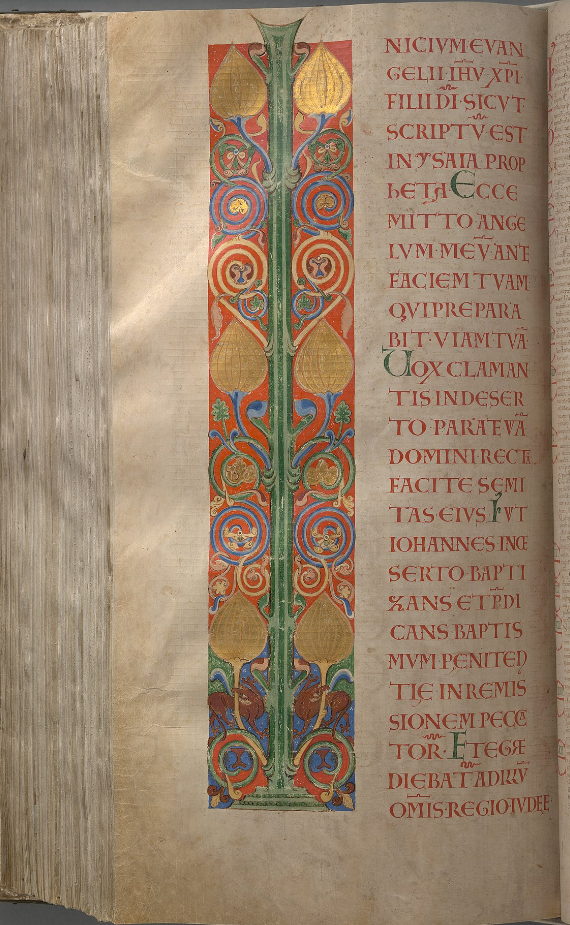 NICIVM EVAN
GELII·IHV XPI·
FILII DI·SICVT
SCRIPTV EST
IN YSAIA PROP
hETA ECCE
MITTO ANGE
LVM·MEV ANT
FACIEM TVAM
QVI PREPARA
BIT·VIAM TVA
VOX CLAMAN
TIS IN DESER
TO·PARATE VIA
DOMINI RECT
FACITE SEMI
TAS EIVS FVIT
IOHANNES IN DE
SERTO·BAPTI
ZANS ET PDI
CANS BAPTIS
MVM·PENITEN
TIE IN REMIS
SIONEM PECCA
TOR· ET EGRE
DIEBAT AD ILLV
OMIS·REGIO·IVDEE